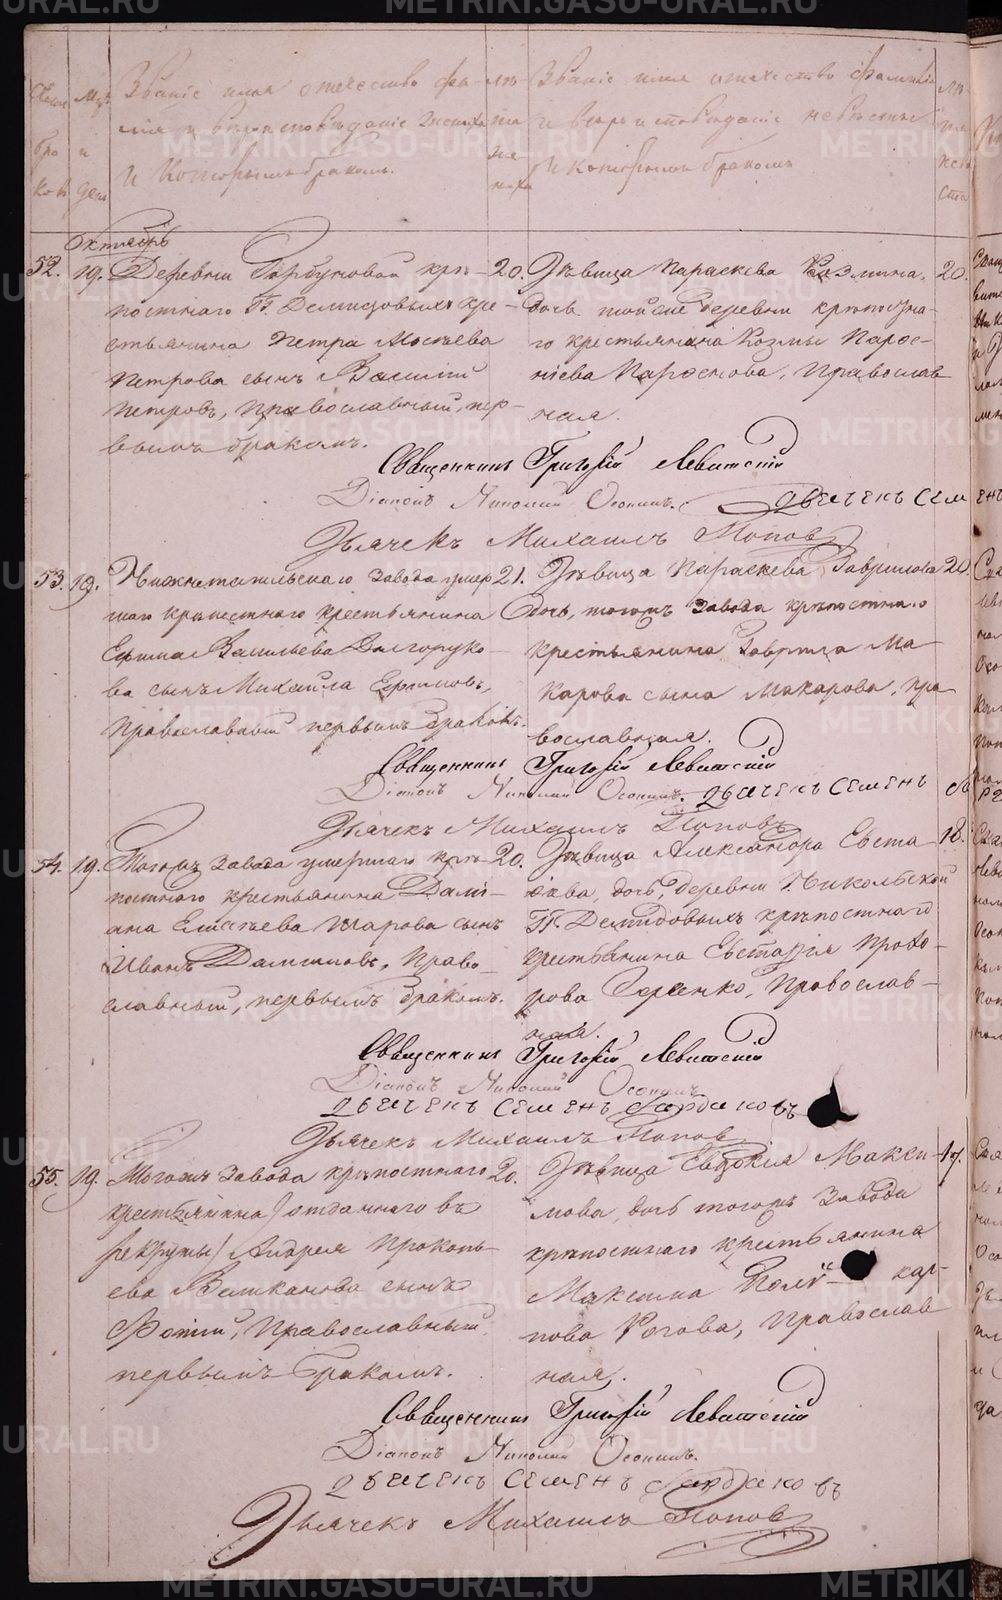 Счетъ браковъ
Мцъ и день
Званіе имя отечество фамилія и вероисповѣданіе жениха и которымъ бракомъ.
лѣта жениха
Званіе имя отечество фамилія и вероисповѣданіе невѣсты и которымъ бракомъ
лѣта невѣсты
Октябрь
52. 19. Деревни Горбуновой крѣ-
постнаго Г. Демидовыхъ кре-
стьянина Петра Мосѣева
Петрова сынъ Василій
Петровъ, православный, пер-
вымъ бракомъ.
20.
Дѣвица Параскева Козмина
дочь, той же деревни крѣпостна-
го крестьянина Козмы Парѳе-
ніева Парѳенова, Православ
ная.
20
Священникъ Григорій Левитскій
Діаконъ Николай Осокинъ. Двечекъ Семенъ
Дьячекъ Михаилъ Поповъ
53. 19. Нижнетагильскаго завода умер
шаго крѣпостнаго крестьянина
Ефима Васильева Долгоруко-
ва сынъ Михаила Ефимовъ,
Православный первымъ бракомъ.
21.
Дѣвица Параскева Гаврилова
дочь, тогожъ завода крѣпостнаго
крестьянина Гаврила Ма-
карова сына Макарова, пра-
вославная.
20.
Священникъ Григорій Левитскій
Діаконъ Николай Осокинъ. Двечекъ Семенъ
Дьячекъ Михаилъ Поповъ
54. 19. Тогожъ завода умершаго крѣ-
постнаго крестьянина Дамі-
ана Елисѣева Шарова сынъ
Иванъ Даміановъ, Право-
славный, первымъ бракомъ.
20.
Дѣвица Александра Евста-
фіева, дочь, деревни Никольской
Гг. Демидовыхъ крѣпостнаго
крестьянина Евстафія Прохо-
рова Геренко, Православ-
ная.
18.
Священникъ Григорій Левитскій
Діаконъ Николай Осокинъ
Двечекъ Семенъ Гордаковъ
Дьячекъ Михаилъ Поповъ
55. 19. Тогожъ завода крѣпостнаго
крестьянина /отданнаго въ
рекруты/ Андрея Прокопь-
ева Великанова сынъ
Фотій, Православный
первымъ бракомъ.
20.
Дѣвица Евдокія Макси-
мова, дочь тогожъ завода
крѣпостнаго крестьянина
Максима Поли- кар-
пова Рогова, Православ
ная.
17.
Священникъ Григорій Левитскій
Діаконъ Николай Осокинъ.
Двечекъ Семенъ Гордаковъ
Дьячекъ Михаилъ Поповъ
METRIKI.GASO-URAL.RU